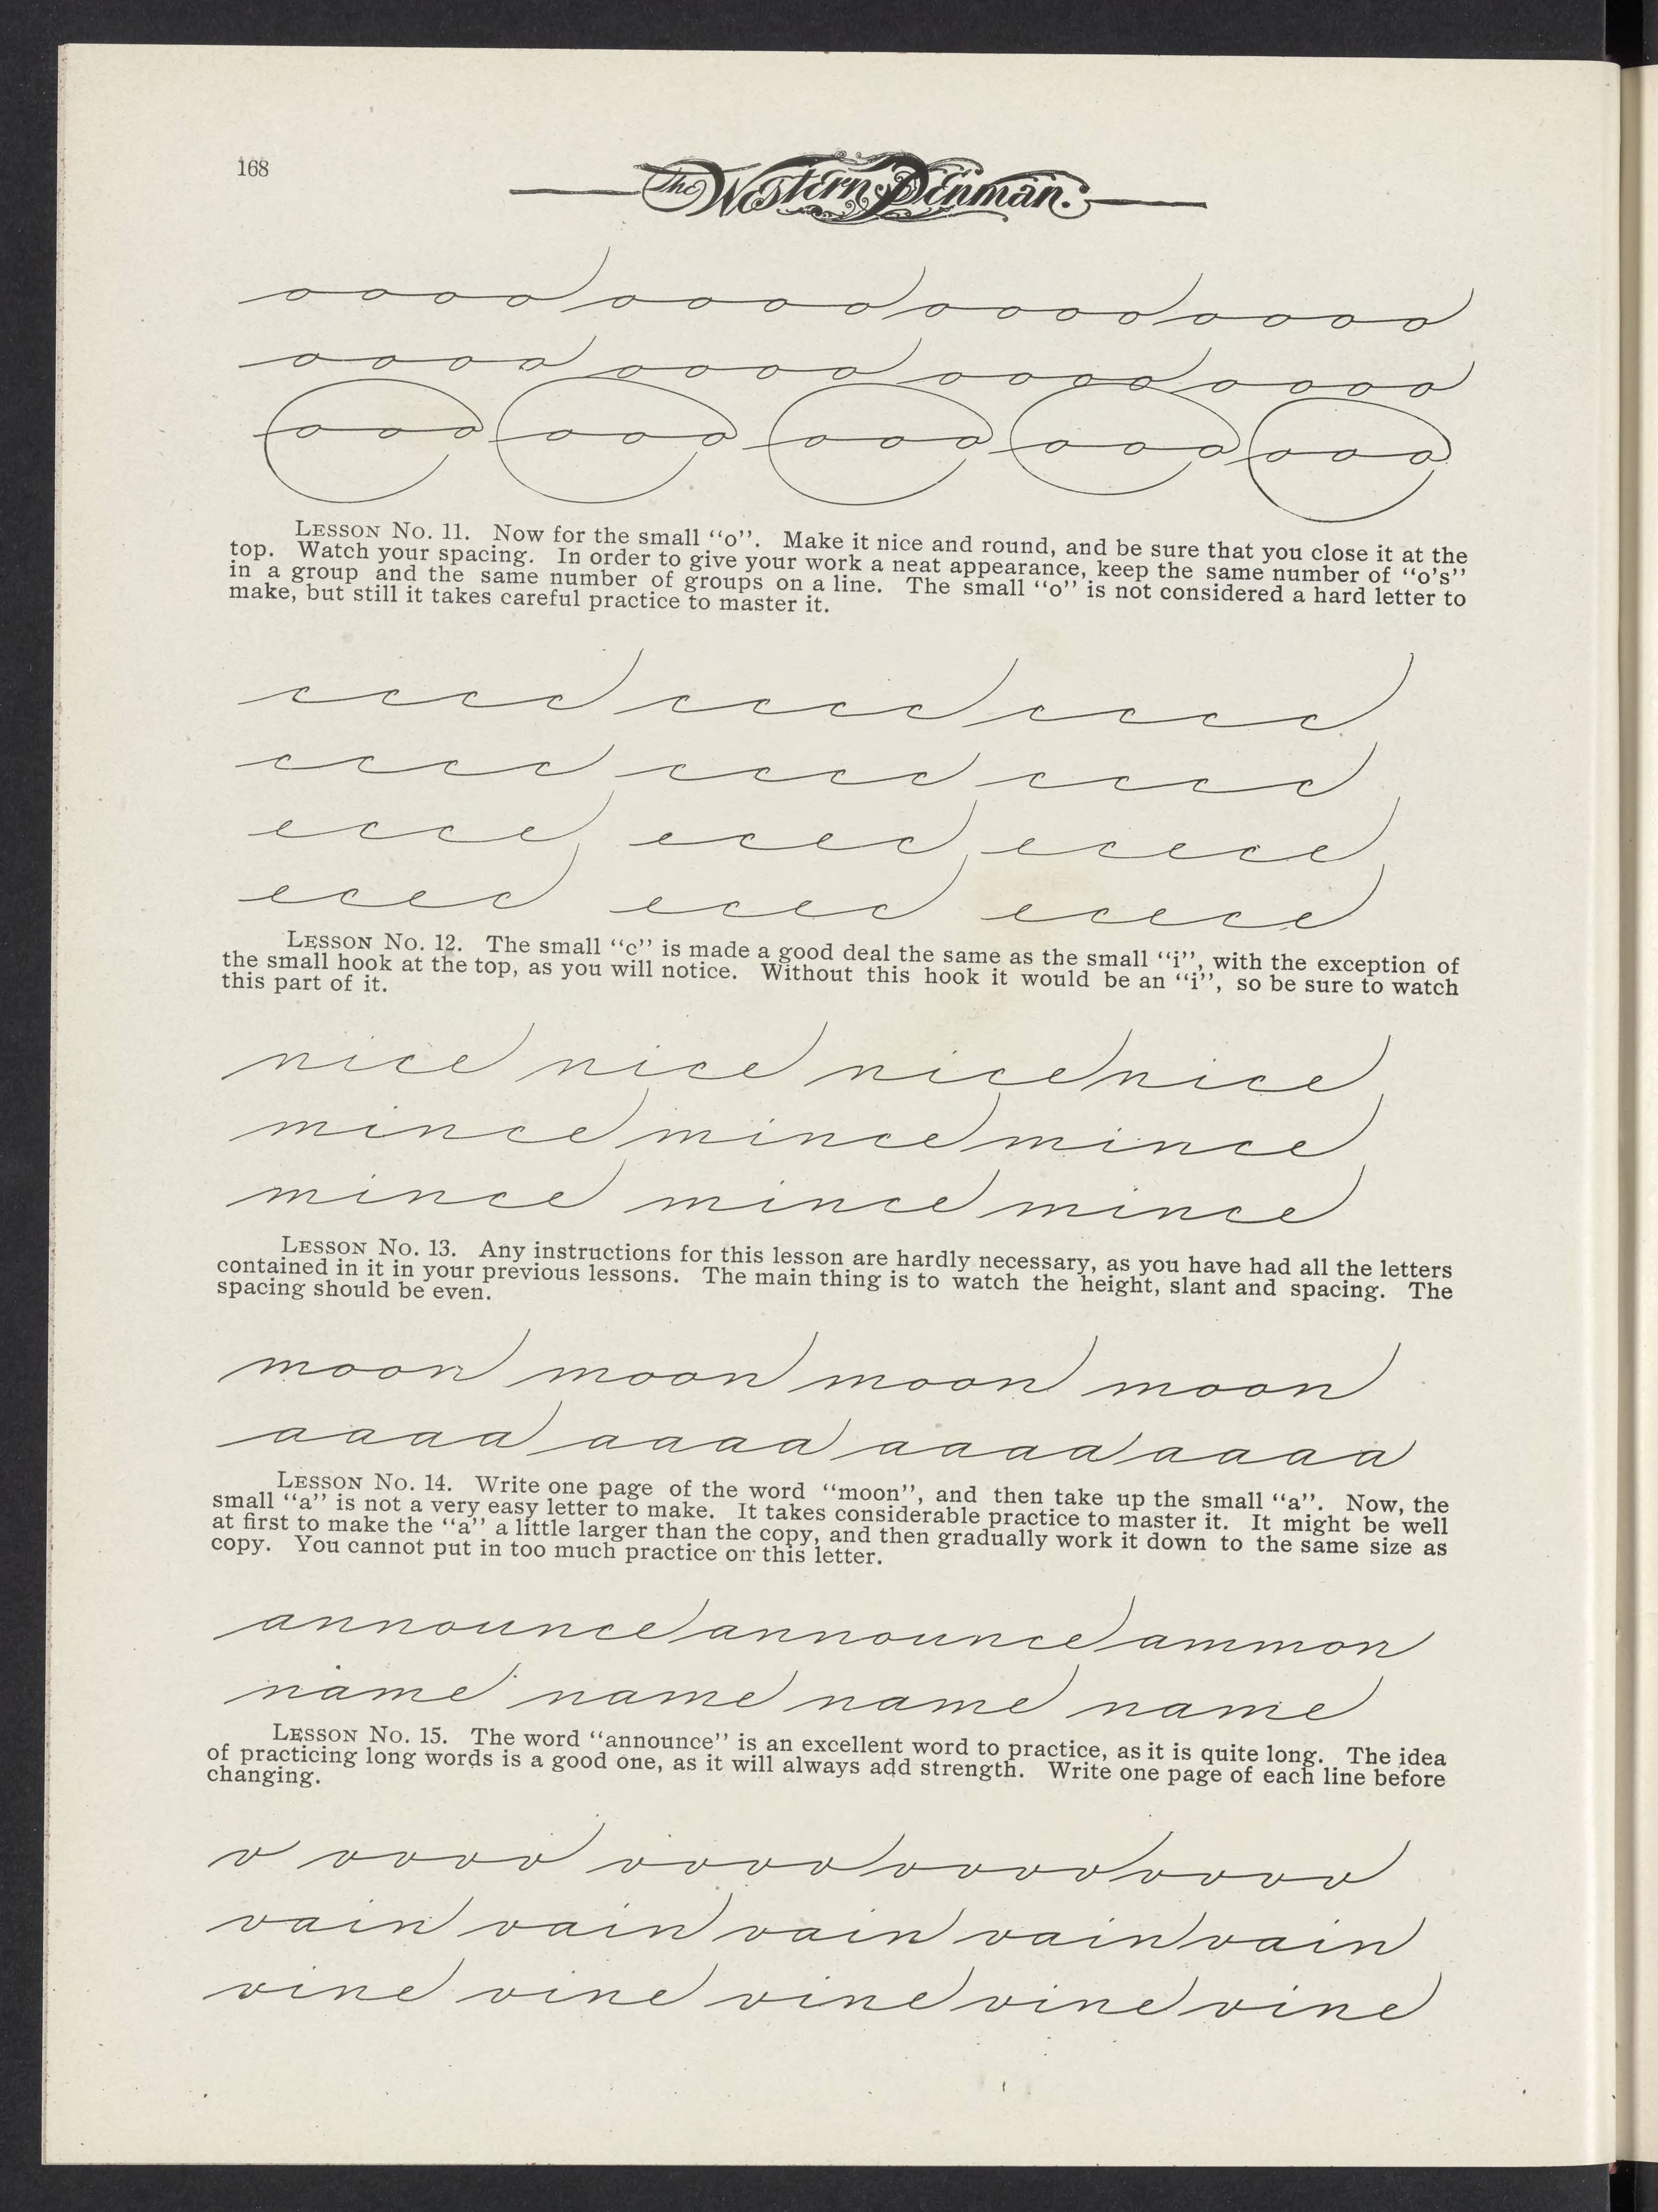 168
The Western Penman.
o o o o o o o o o o o o o o o o
o o o o o o o o o o o o o o o o
o o o o o o o o o o o o o o o
LESSON No. 11. Now for the small "o". Make it nice and round, and be sure that you close it at the
top. Watch your spacing. In order to give your work a neat appearance, keep the same number of "o's"
in a group and the same number of groups on a line. The small "o" is not considered a hard letter to
make, but still it takes careful practice to master it.
c c c c c c c c c c c c
c c c c c c c c c c c c
e c c e e c e c e c e c e
e c e c e c e c e c e c e
LESSON No. 12. The small "c" is made a good deal the same as the small "i", with the exception of
the small hook at the top, as you will notice. Without this hook it would be an "i", so be sure to watch
this part of it.
nice nice nice nice
mince mince mince
mince mince mince
LESSON No. 13. Any instructions for this lesson are hardly necessary, as you have had all the letters
contained in it in your previous lessons. The main thing is to watch the height, slant and spacing. The
spacing should be even.
moon moon moon moon
a a a a a a a a a a a a a a a a
LESSON No. 14. Write one page of the word "moon", and then take up the small "a". Now, the
small "a" is not a very easy letter to make. It takes considerable practice to master it. It might be well
at first to make the "a" a little larger than the copy, and then gradually work it down to the same size as
copy. You cannot put in too much practice on this letter.
announce announce ammon
name name name name
LESSON No. 15. The word "announce" is an excellent word to practice, as it is quite long. The idea
of practicing long words is a good one, as it will always add strength. Write one page of each line before
changing.
v v v v v v v v v v v v v v v v v
vain vain vain vain vain
vine vine vine vine vine